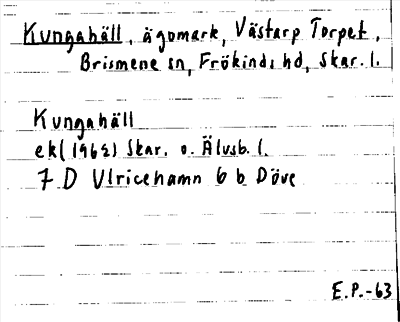 Kungahäll, ägomark, Västarp Torpet,
Brismene sn, Frökinds hd, Skar. l.
Kungahäll
ek (1962) Skar. o. Älvsb. l.
7 D Ulricehamn 6 b Döve
E.P.-63